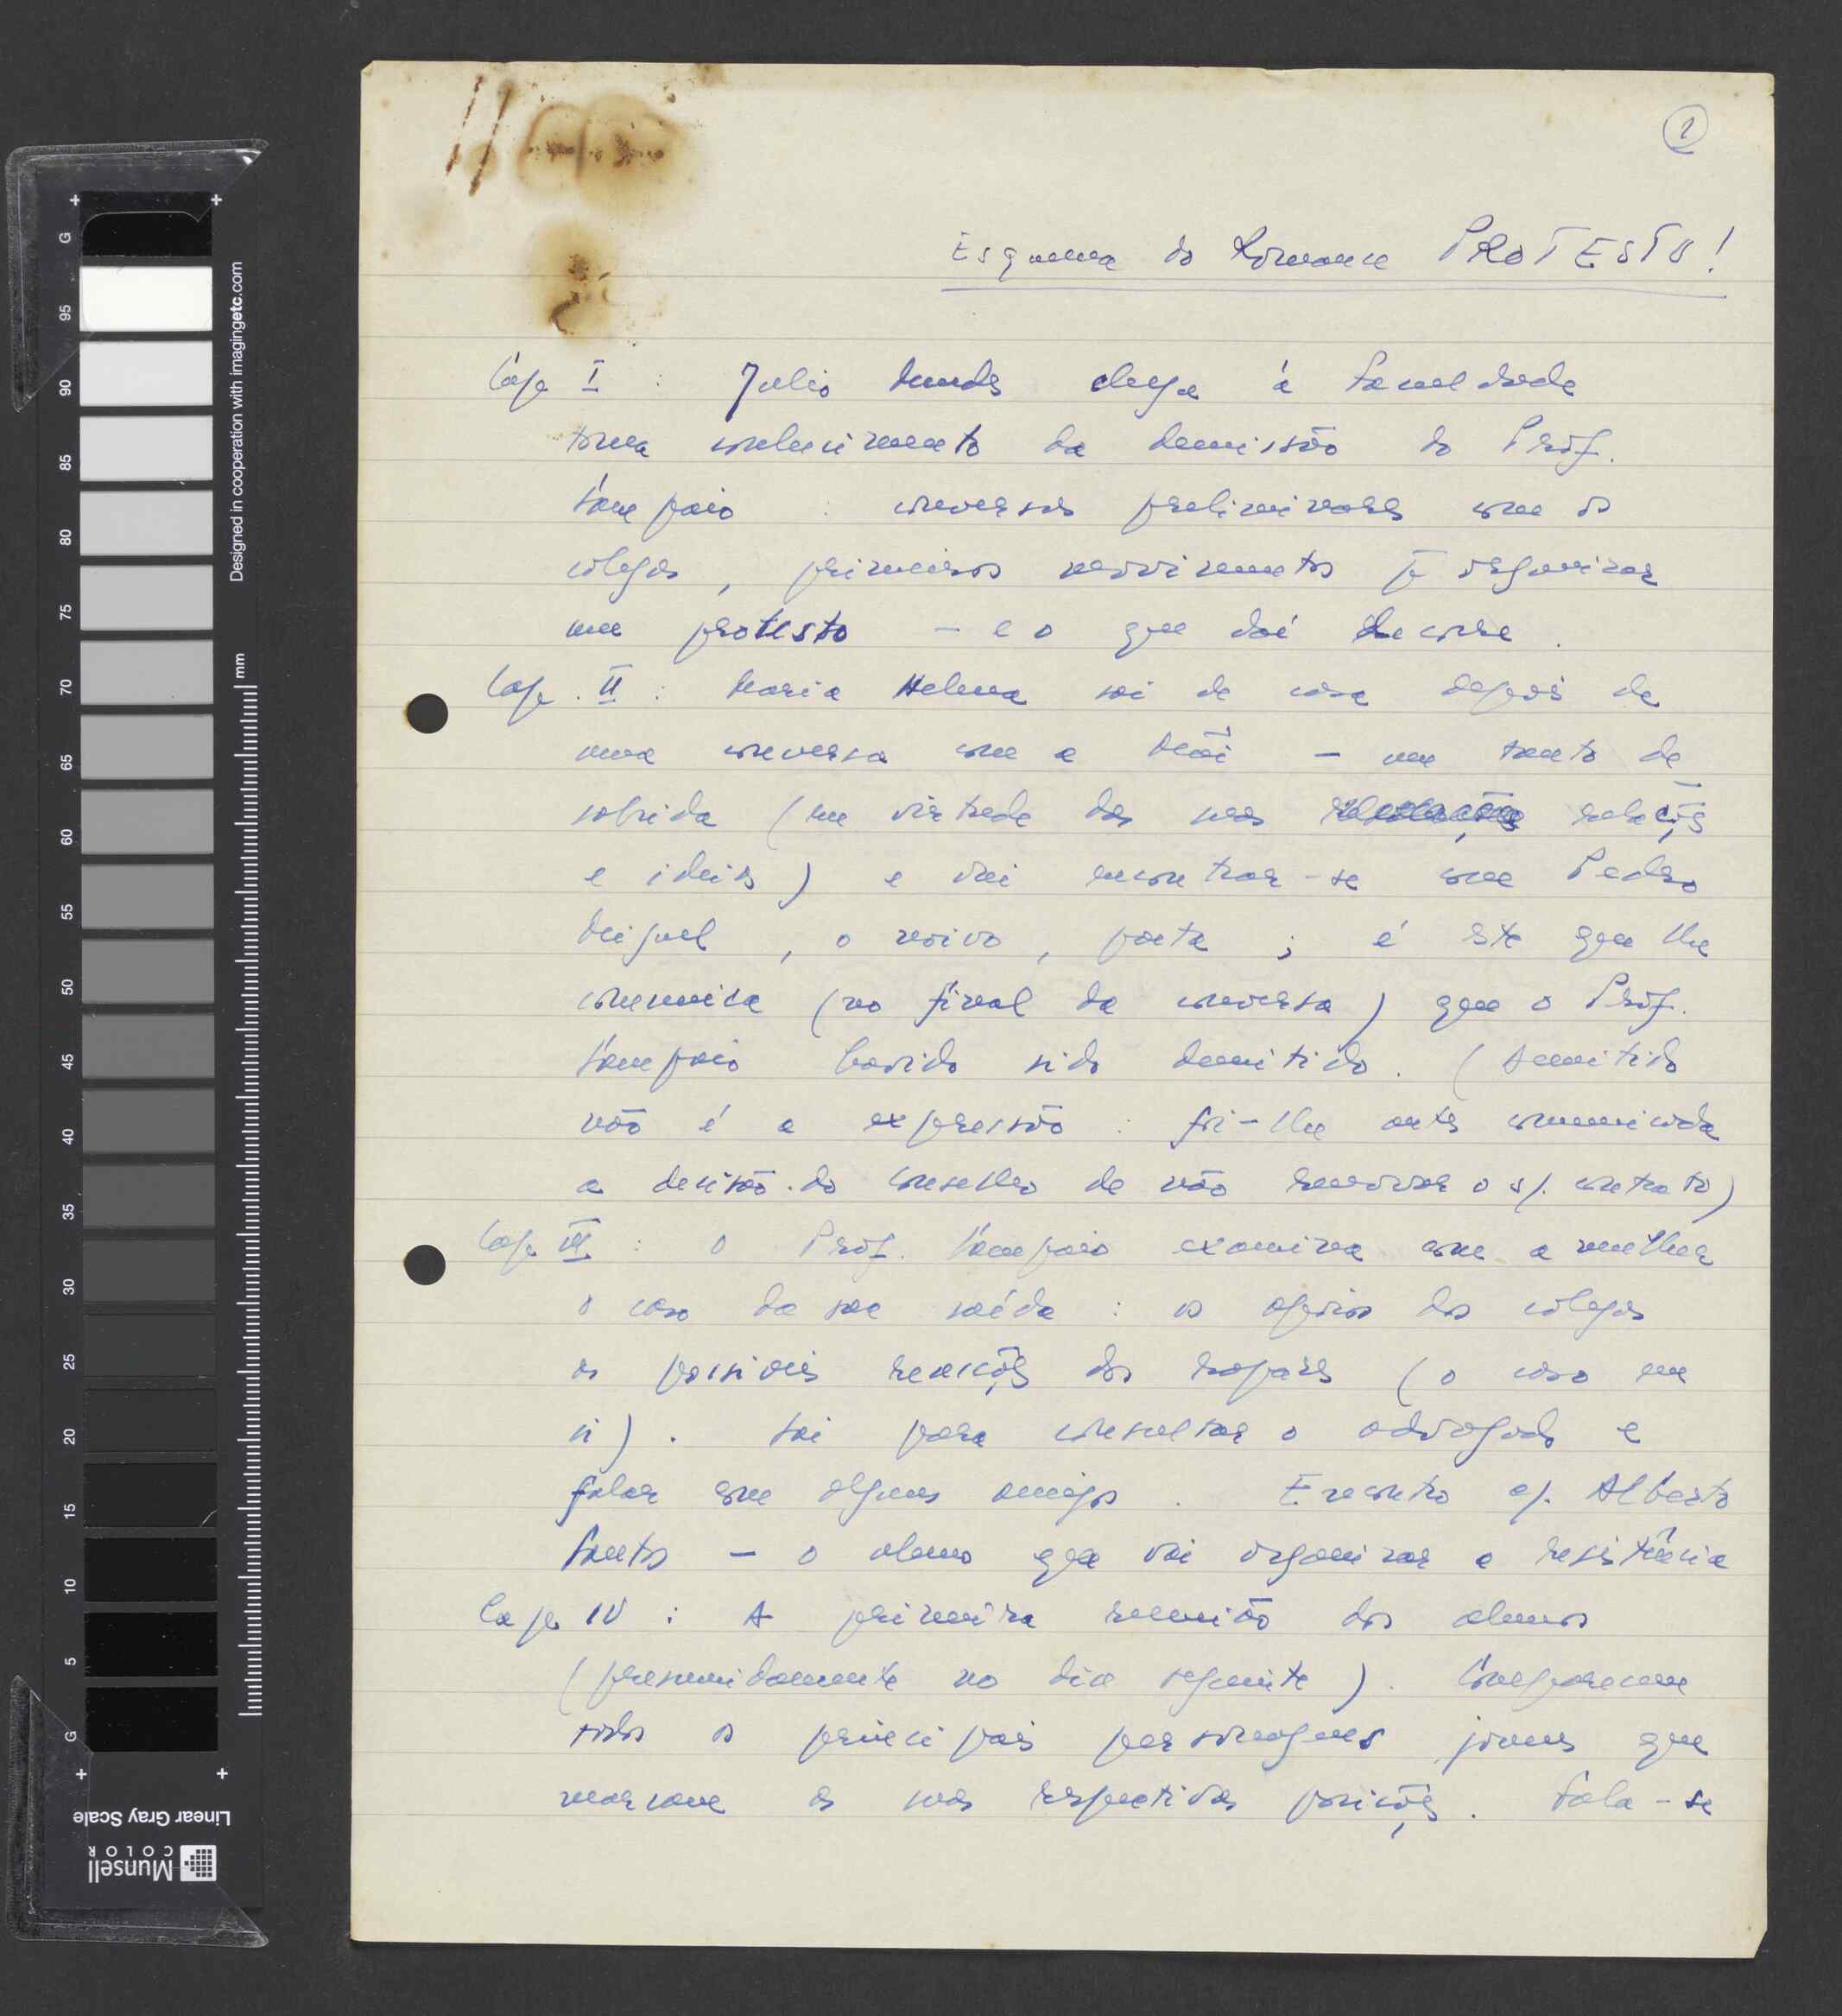 1
Esquema do Romance PROTESTO!
Cap I : Julio chega à Faculdade
toma conhecimento da demissão do Prof.
Sampaio : conversas preliminares com os
colegas, primeiros movimentos p̄ organizar
um protesto – e o que daí decorre.
Cap. II : Maria Helena sai de casa depois de
uma conversa com a Mãi – um tanto de
(em virtude das suas relações
e ideias) e vai encontrar-se com Pedro
Miguel, o noivo, poeta ; é este que lhe
comunica (no final da conversa) que o Prof.
Sampaio havido sido demitido. (Demitido
não é a expressão : foi-lhe antes comunicada
a decisão do Conselho de não renovar o s/. contrato)
Cap III : O Prof. Sampaio examina com a mulher
o caso da sua saída : os apoios dos colegas
as possiveis reacções dos rapazes (o caso em
si). Sai para consultar o advogado e
falar com alguns amigos. Encontro c/. Alberto
Santos – o aluno que vai organizar a resistência
Cap IV : A primeira reunião dos alunos
(presumidamente no dia seguinte). Comparecem
todos os principais personagens jovens que
marcam as suas respectivas posições. Fala-se
95
90
85
80
75
70
65
60
55
50
45
40
35
30
25
20
15
10
5
G
G
mm
Designed in cooperation with imagingetc.com
Linear Gray Scale
Munsell
COLOR